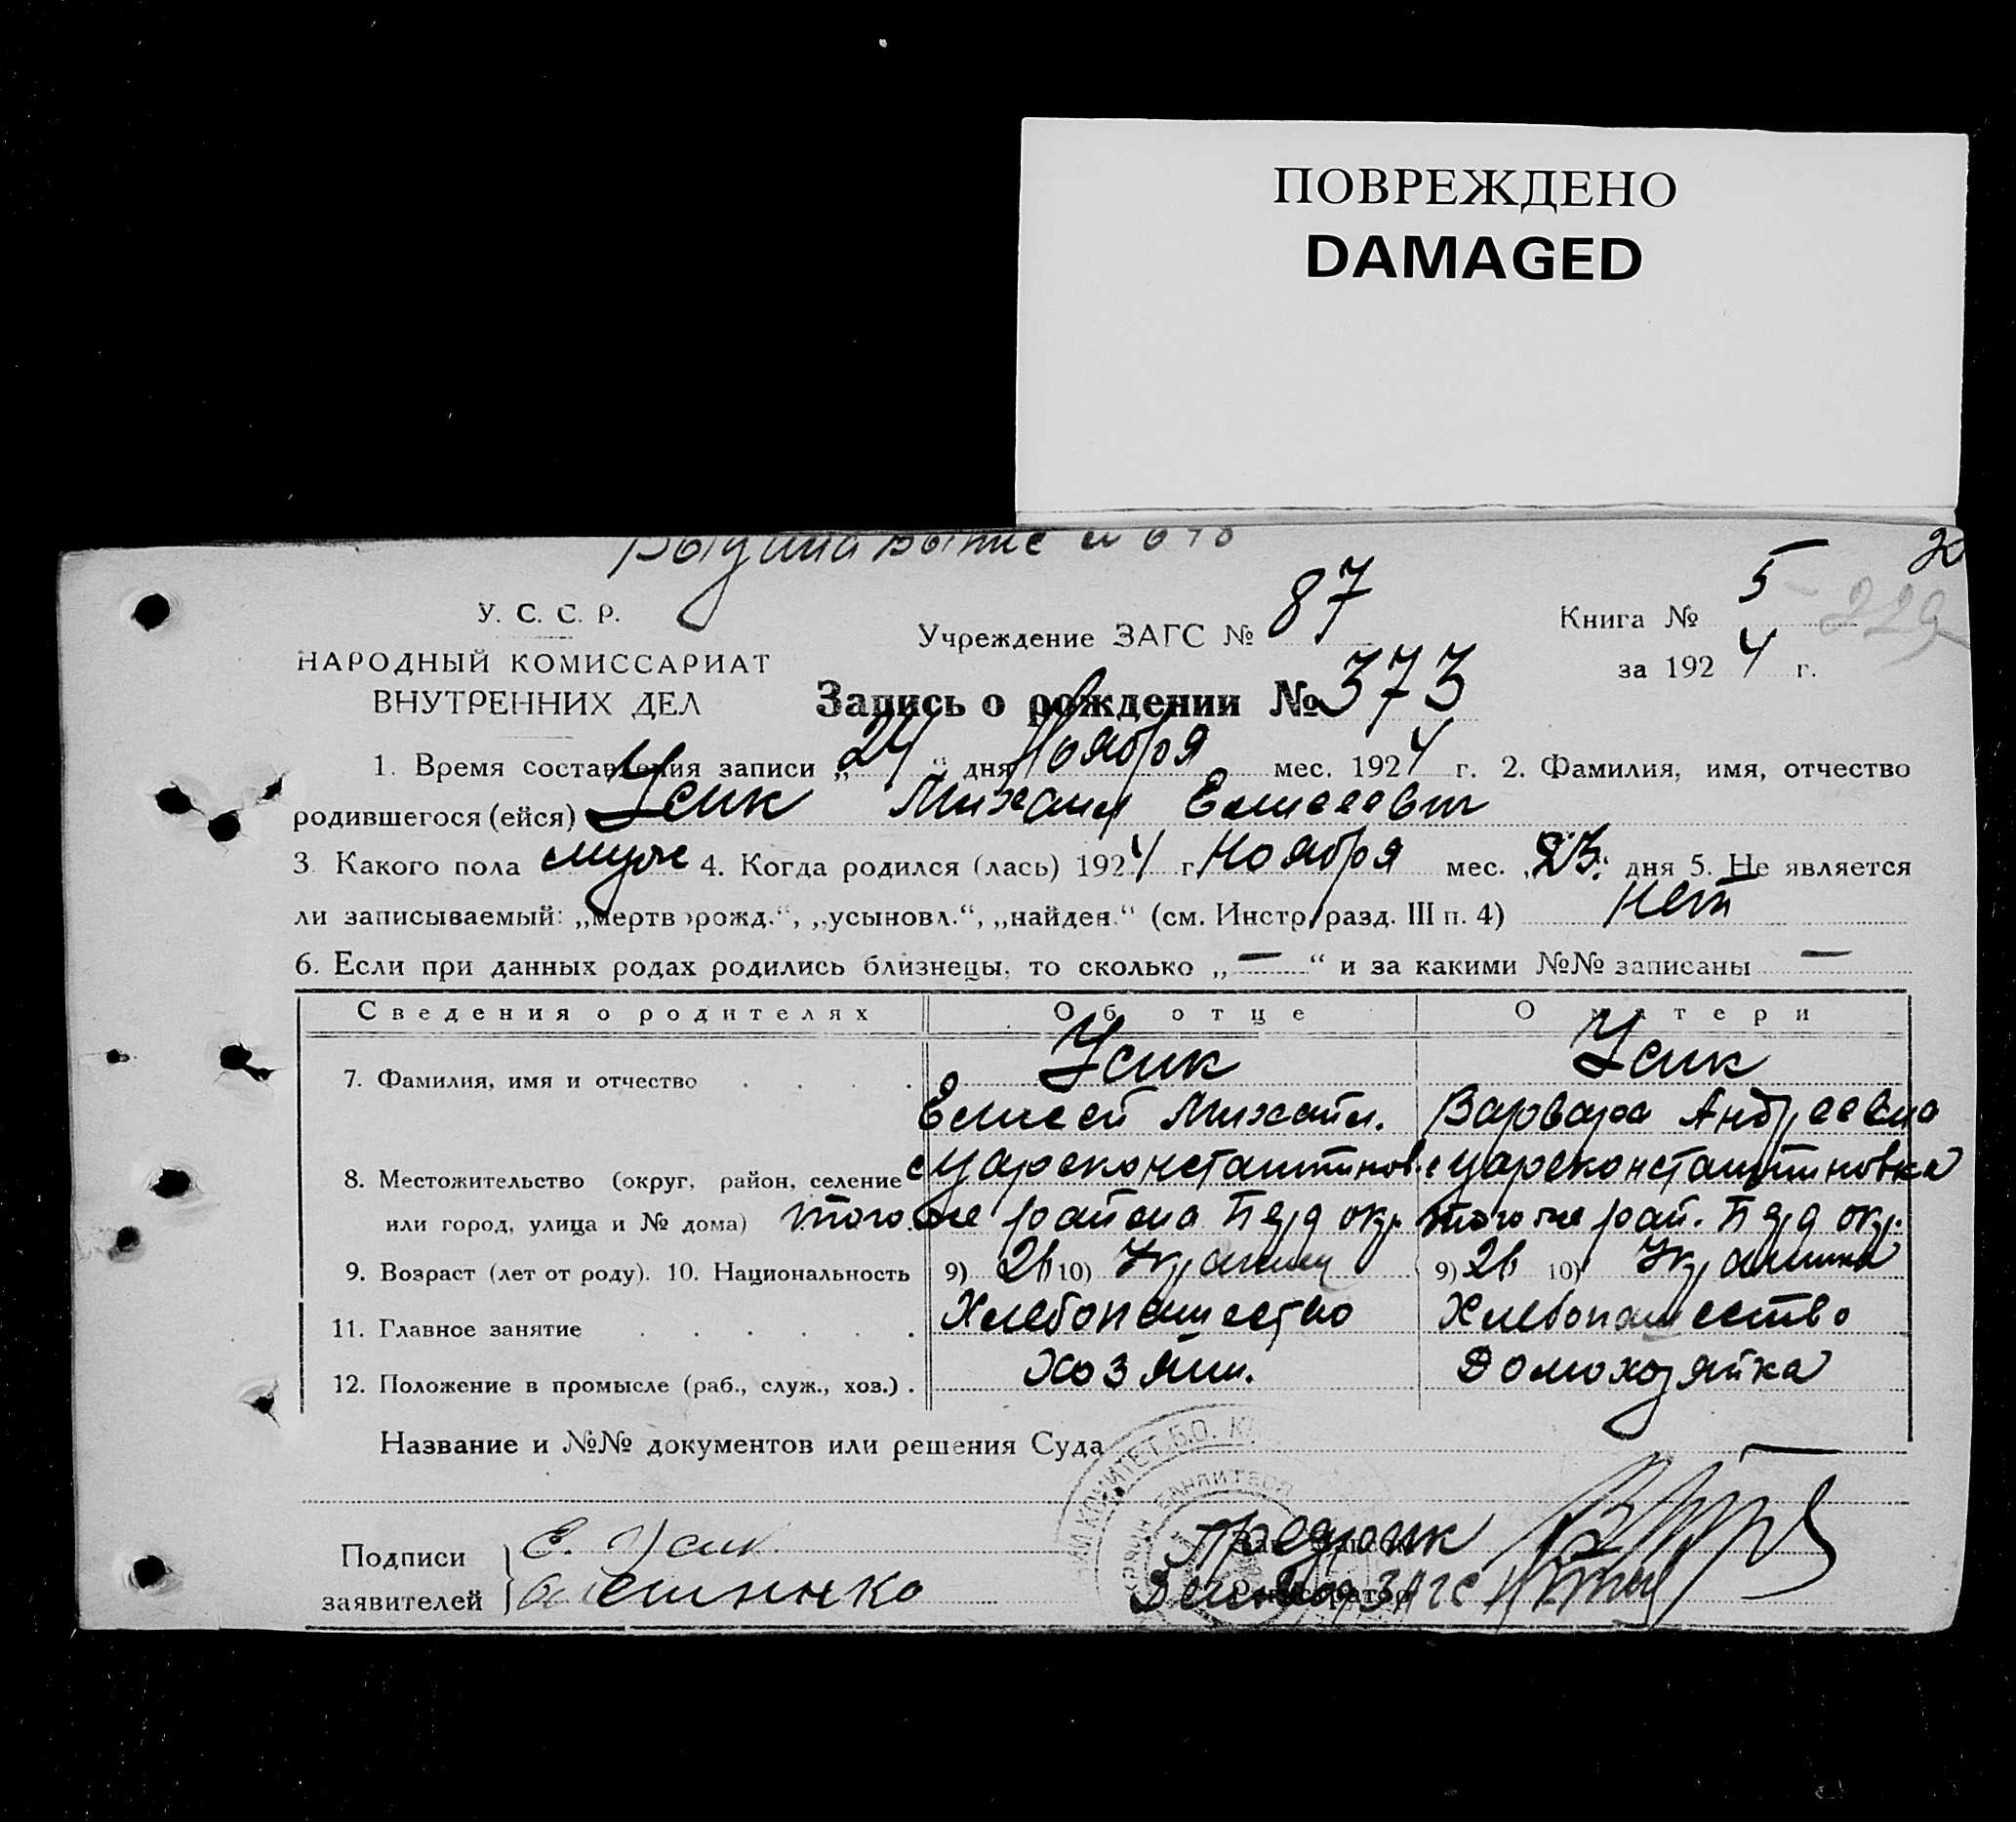 ПОВРЕЖДЕНО
DAMAGED
У. С. С. Р.
НАРОДНЫЙ КОМИССАРИАТ
ВНУТРЕННИХ ДЕЛ
Учреждение ЗАГС № 87
Книга № 5
229
за 1924 г.
Запись о рождении № 373
1. Время составления записи „24“ дня Ноября мес. 1924 г. 2. Фамилия, имя, отчество
родившегося (ейся) Усик Михаил Елисеевич
3. Какого пола муже 4. Когда родился (лась) 1924 г. Ноября мес. „23“ дня 5. Не является
ли записываемый: „мертворожд.“, „усыновл.“, „найден.“ (см. Инстр. разд. III п. 4) нет
6. Если при данных родах родились близнецы, то сколько „—“ и за какими №№ записаны —
Сведения о родителях Об отце О матери
7. Фамилия, имя и отчество . . . . Усик Усик
Елисей Михайл. Варвара Андреевна
8. Местожительство (округ, район, селение с Цареконстантинов. с Цареконстантиновка
или город, улица и № дома) того же района Берд окр. того же рай. Берд окр.
9. Возраст (лет от роду). 10. Национальность 9) 26 10) Украинец 9) 26 10) Украинка
11. Главное занятие . . . . . . Хлебопашество Хлебопашество
12. Положение в промысле (раб., служ., хоз.) . Хозяин. Домохозяйка
Название и №№ документов или решения Суда —
Подписи
заявителей
Е. Усик